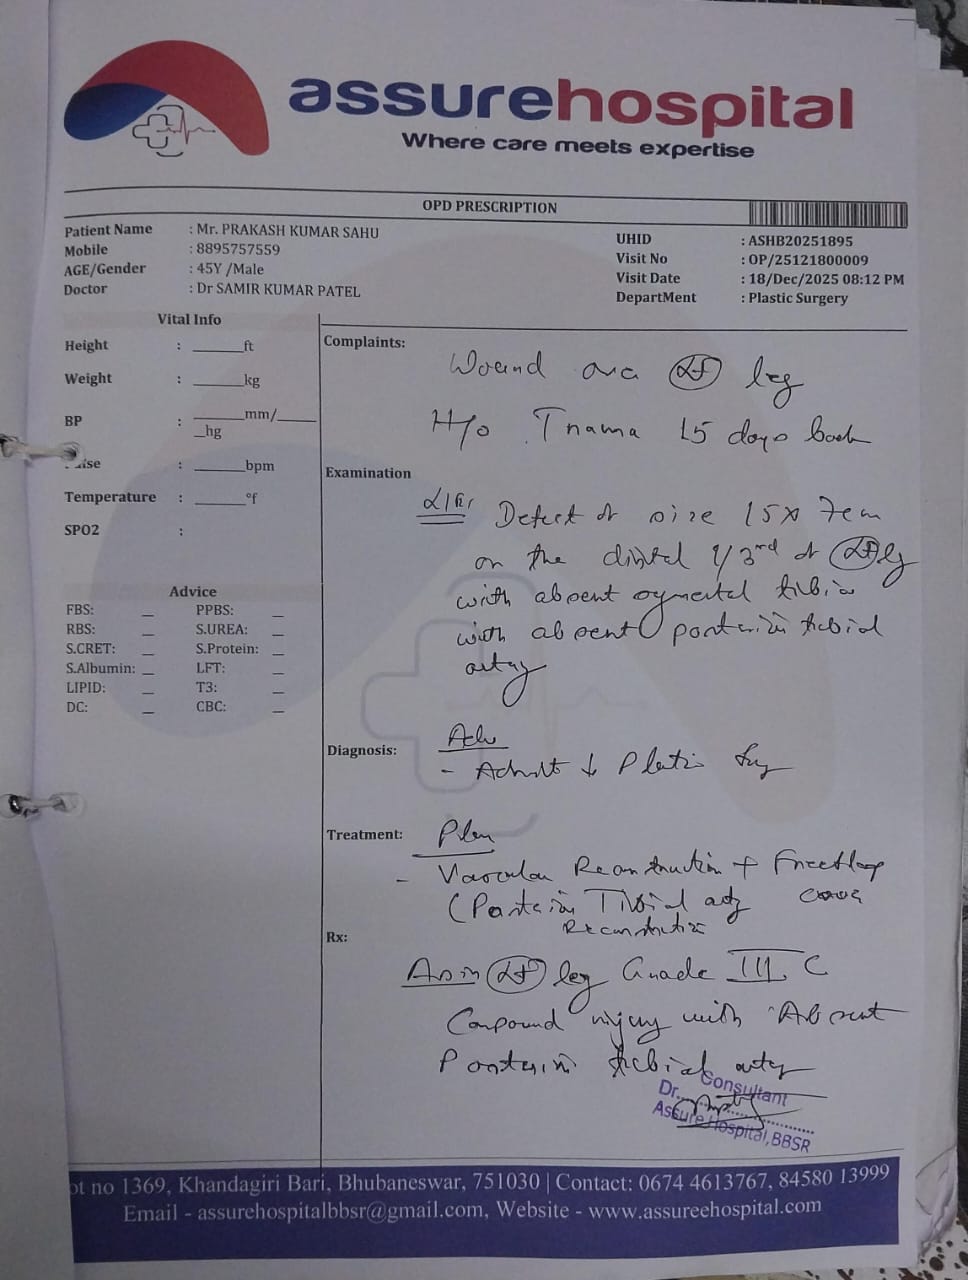 assurehospital
Where care meets expertise
OPD PRESCRIPTION
Patient Name : Mr. PRAKASH KUMAR SAHU
Mobile : 8895757559
AGE/Gender : 45Y /Male
Doctor : Dr SAMIR KUMAR PATEL
UHID : ASHB20251895
Visit No : OP/25121800009
Visit Date : 18/Dec/2025 08:12 PM
DepartMent : Plastic Surgery
Vital Info
Height : ______ft
Weight : ______kg
BP : ______mm/____
_hg
: ______bpm
Temperature : ______°f
SPO2 :
Advice
FBS: _ PPBS: _
RBS: _ S.UREA: _
S.CRET: _ S.Protein: _
S.Albumin: _ LFT: _
LIPID: _ T3: _
DC: _ CBC: _
Complaints:
Wound over Lt leg
H/o Trauma 15 days back
Examination
Defect of size 15x7cm
on the distal 1/3rd of Lt leg
with absent segmental tibia
with absent posterior tibial
artery
Diagnosis:
Adv
- Admit Plastic Surg
Treatment:
Plan
- Vascular Reconstruction + Free flap
cover
(Posterior Tibial arty
Reconstruction
Rx:
Lt leg Grade III C
Compound injury with Absent
Posterior tibial artery
Consultant
Dr.
Assure Hospital, BBSR
ot no 1369, Khandagiri Bari, Bhubaneswar, 751030 | Contact: 0674 4613767, 84580 13999
Email - assurehospitalbbsr@gmail.com, Website - www.assureehospital.com